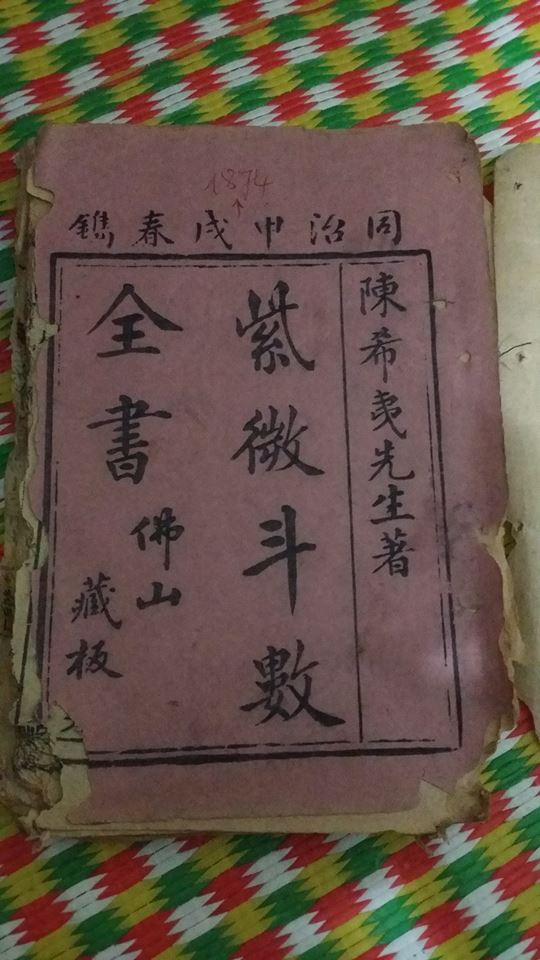 1874
↑
同治甲戌春鐫
陳希夷先生著
紫微斗數
全書
佛山
藏板